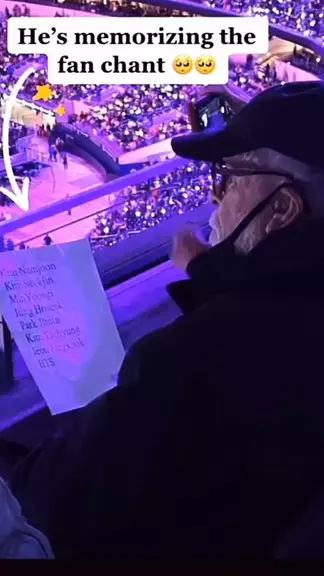 He's memorizing the
fan chant 🥺🥺
Kim Namjoon
Kim Seokjin
Min Yoongi
Jung Hoseok
Park Jimin
Kim Taehyung
Jeon Jungkook
BTS